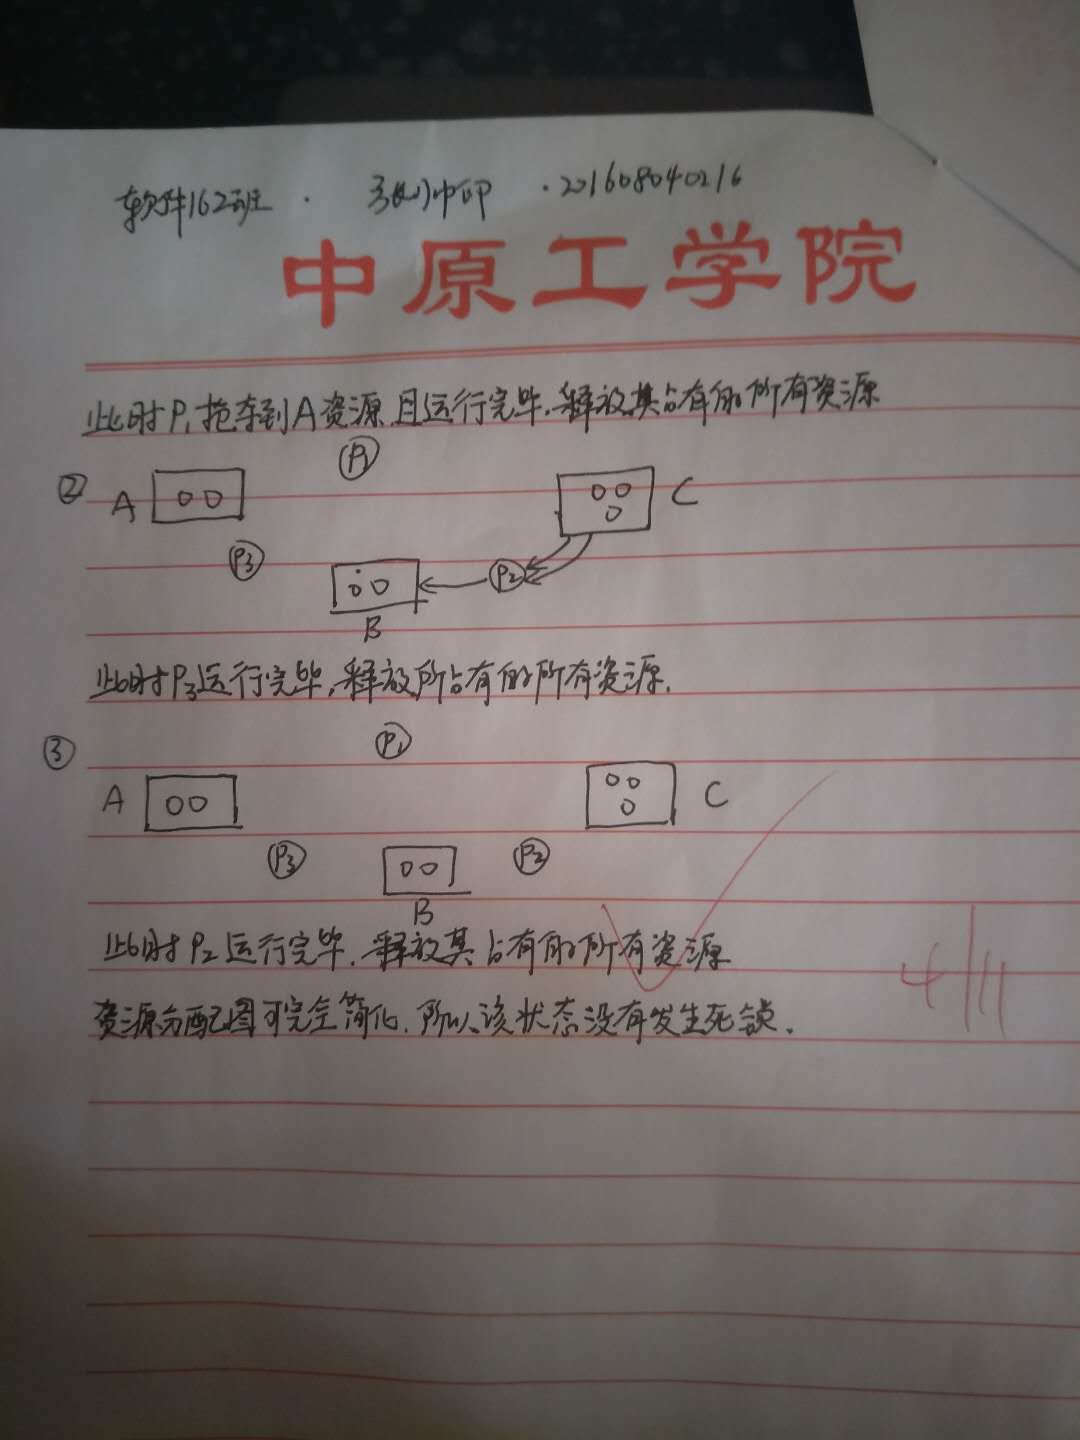 软件162班 · · 201608040216
中原工学院
此时P₁抢夺到A资源,且运行完毕,释放其占有的所有资源
② A P₁ C
P₃ P₂
B
此时P₃运行完毕,释放所占有的所有资源.
③ P₁
A C
P₃ P₂
B
此时P₂运行完毕,释放其占有的所有资源
资源分配图可完全简化,所以该状态没有发生死锁.
4/11